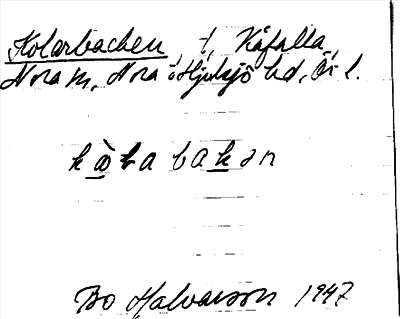 Kolarbacken, -, Kåfalla,
Nora m, Nora o Hjulsjö hd, Ör l.
kòlabakən
Bo Halvarson 1947